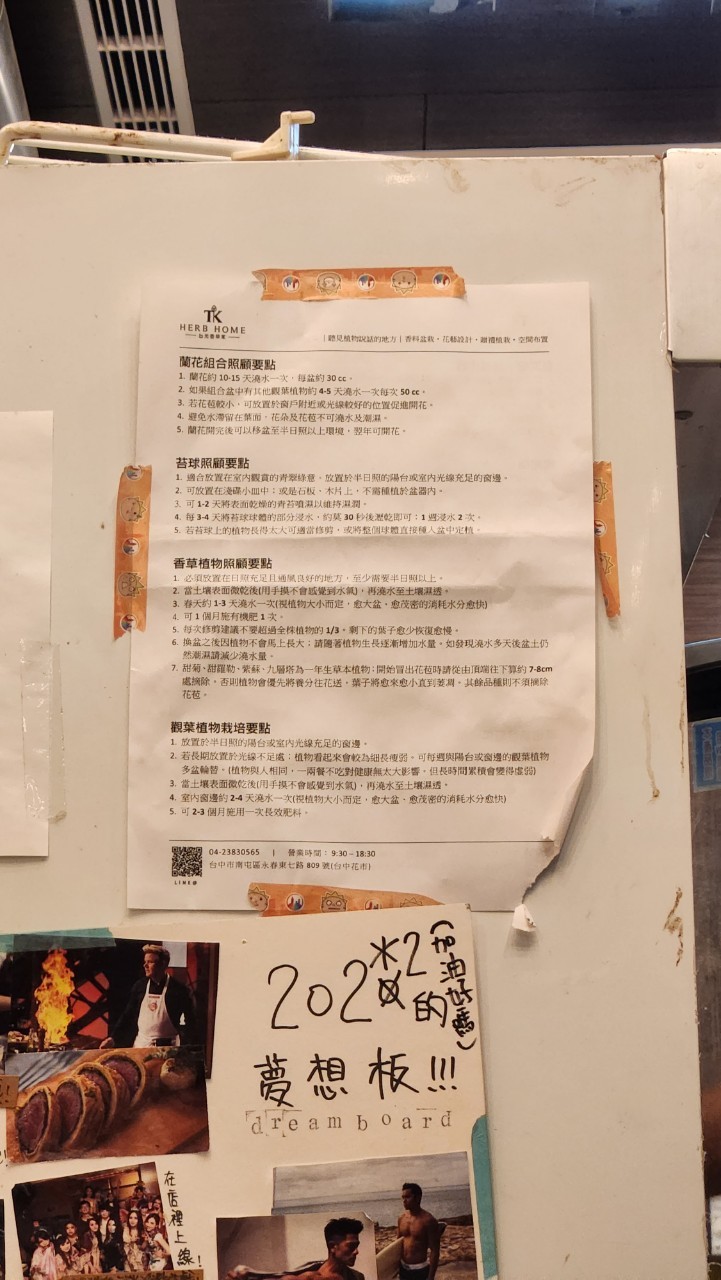 TK
HERB HOME
｜聽見植物說話的地方｜香料盆栽・花藝設計・贈禮植栽・空間布置
蘭花組合照顧要點
1. 蘭花約 10-15 天澆水一次，每盆約 30 cc。
2. 如果組合盆中有其他觀葉植物約 4-5 天澆水一次每次 50 cc。
3. 若花苞較小，可放置於窗戶附近或光線較好的位置促進開花。
4. 避免水滯留在葉面，花朵及花苞不可澆水及潮濕。
5. 蘭花開完後可以移盆至半日照以上環境，翌年可開花。
苔球照顧要點
1. 適合放置在室內觀賞的青翠綠意。放置於半日照的陽台或室內光線充足的窗邊。
2. 可放置在淺碟小皿中；或是石板、木片上，不需種植於盆器內。
3. 可 1-2 天將表面乾燥的青苔噴濕以維持濕潤。
4. 每 3-4 天將苔球球體的部分浸水，約莫 30 秒後瀝乾即可；1 週浸水 2 次。
5. 若苔球上的植物長得太大可適當修剪，或將整個球體直接種入盆中定植。
香草植物照顧要點
1. 必須放置在日照充足且通風良好的地方，至少需要半日照以上。
2. 當土壤表面微乾後(用手摸不會感覺到水氣)，再澆水至土壤濕透。
3. 春天約 1-3 天澆水一次(視植物大小而定，愈大盆、愈茂密的消耗水分愈快)
4. 可 1 個月施有機肥 1 次。
5. 每次修剪建議不要超過全株植物的 1/3。剩下的葉子愈少恢復愈慢。
6. 換盆之後因植物不會馬上長大；請隨著植物生長逐漸增加水量。如發現澆水多天後盆土仍
然潮濕請減少澆水量。
7. 甜菊、甜羅勒、紫蘇、九層塔為一年生草本植物；開始冒出花苞時請從由頂端往下算約 7-8cm
處摘除。否則植物會優先將養分往花送，葉子將愈來愈小直到萎凋。其餘品種則不須摘除
花苞。
觀葉植物栽培要點
1. 放置於半日照的陽台或室內光線充足的窗邊。
2. 若長期放置於光線不足處；植物看起來會較為細長瘦弱。可每週與陽台或窗邊的觀葉植物
多盆輪替。(植物與人相同，一兩餐不吃對健康無太大影響，但長時間累積會變得虛弱)
3. 當土壤表面微乾後(用手摸不會感覺到水氣)，再澆水至土壤濕透。
4. 室內窗邊約 2-4 天澆水一次(視植物大小而定，愈大盆、愈茂密的消耗水分愈快)
5. 可 2-3 個月施用一次長效肥料。
04-23830565 ｜ 營業時間：9:30－18:30
台中市南屯區永春東七路 809 號(台中花市)
LINE@
2022的
(加油好嗎)
夢想板!!!
dreamboard
在店裡上線!